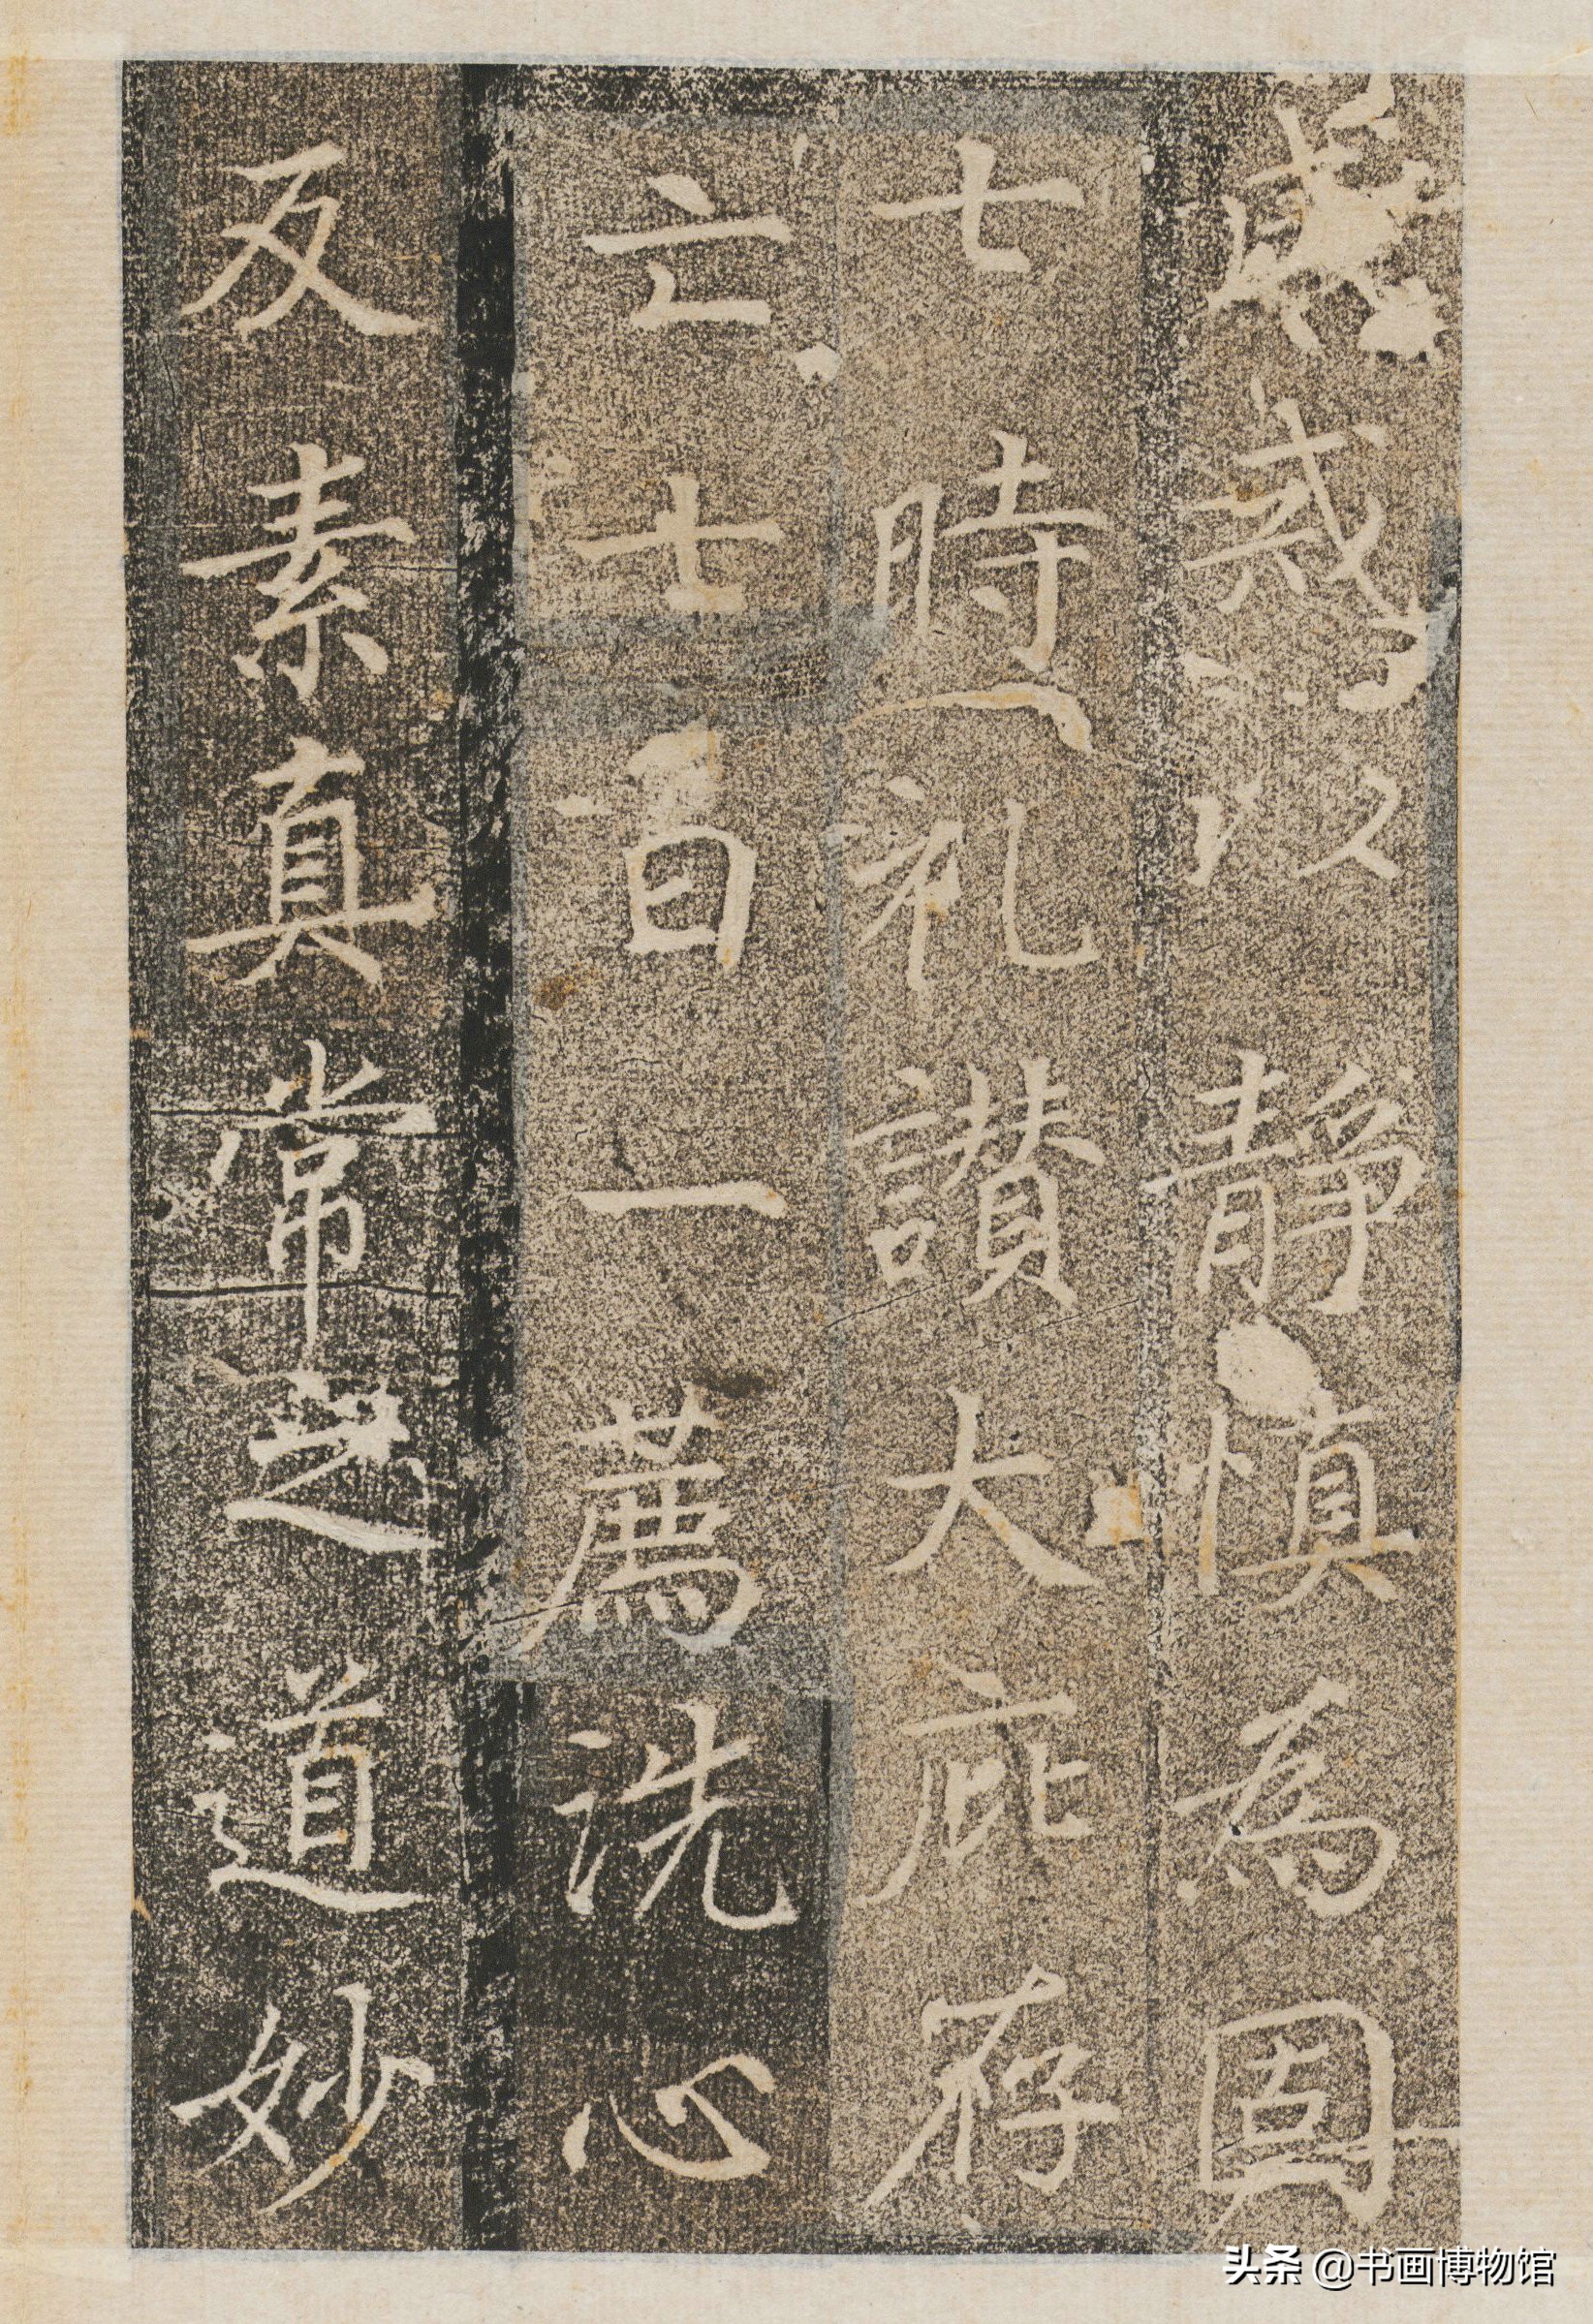 靜慎為
七時礼讚大庇存
亡七百一薦洗心
反素真常之道妙
头条 @书画博物馆